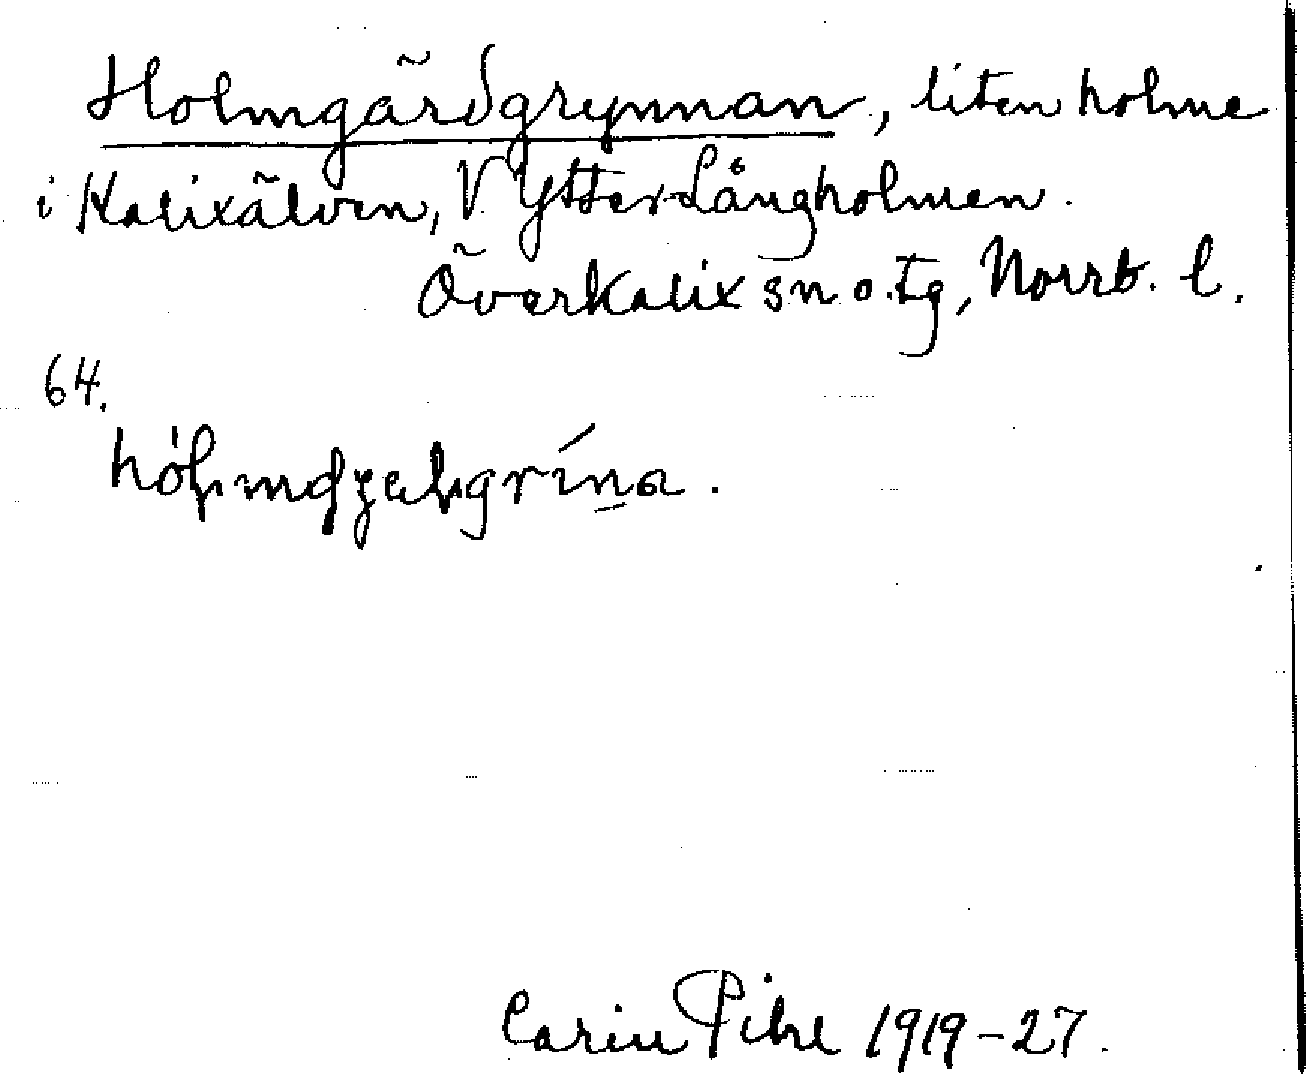 Holmgärdgrynnan, liten holme
i Kalixälven, V. Ytter-Långholmen.
Överkalix sn o. tg, Norrb. l.
64.
Carin Pihl 1919-27.